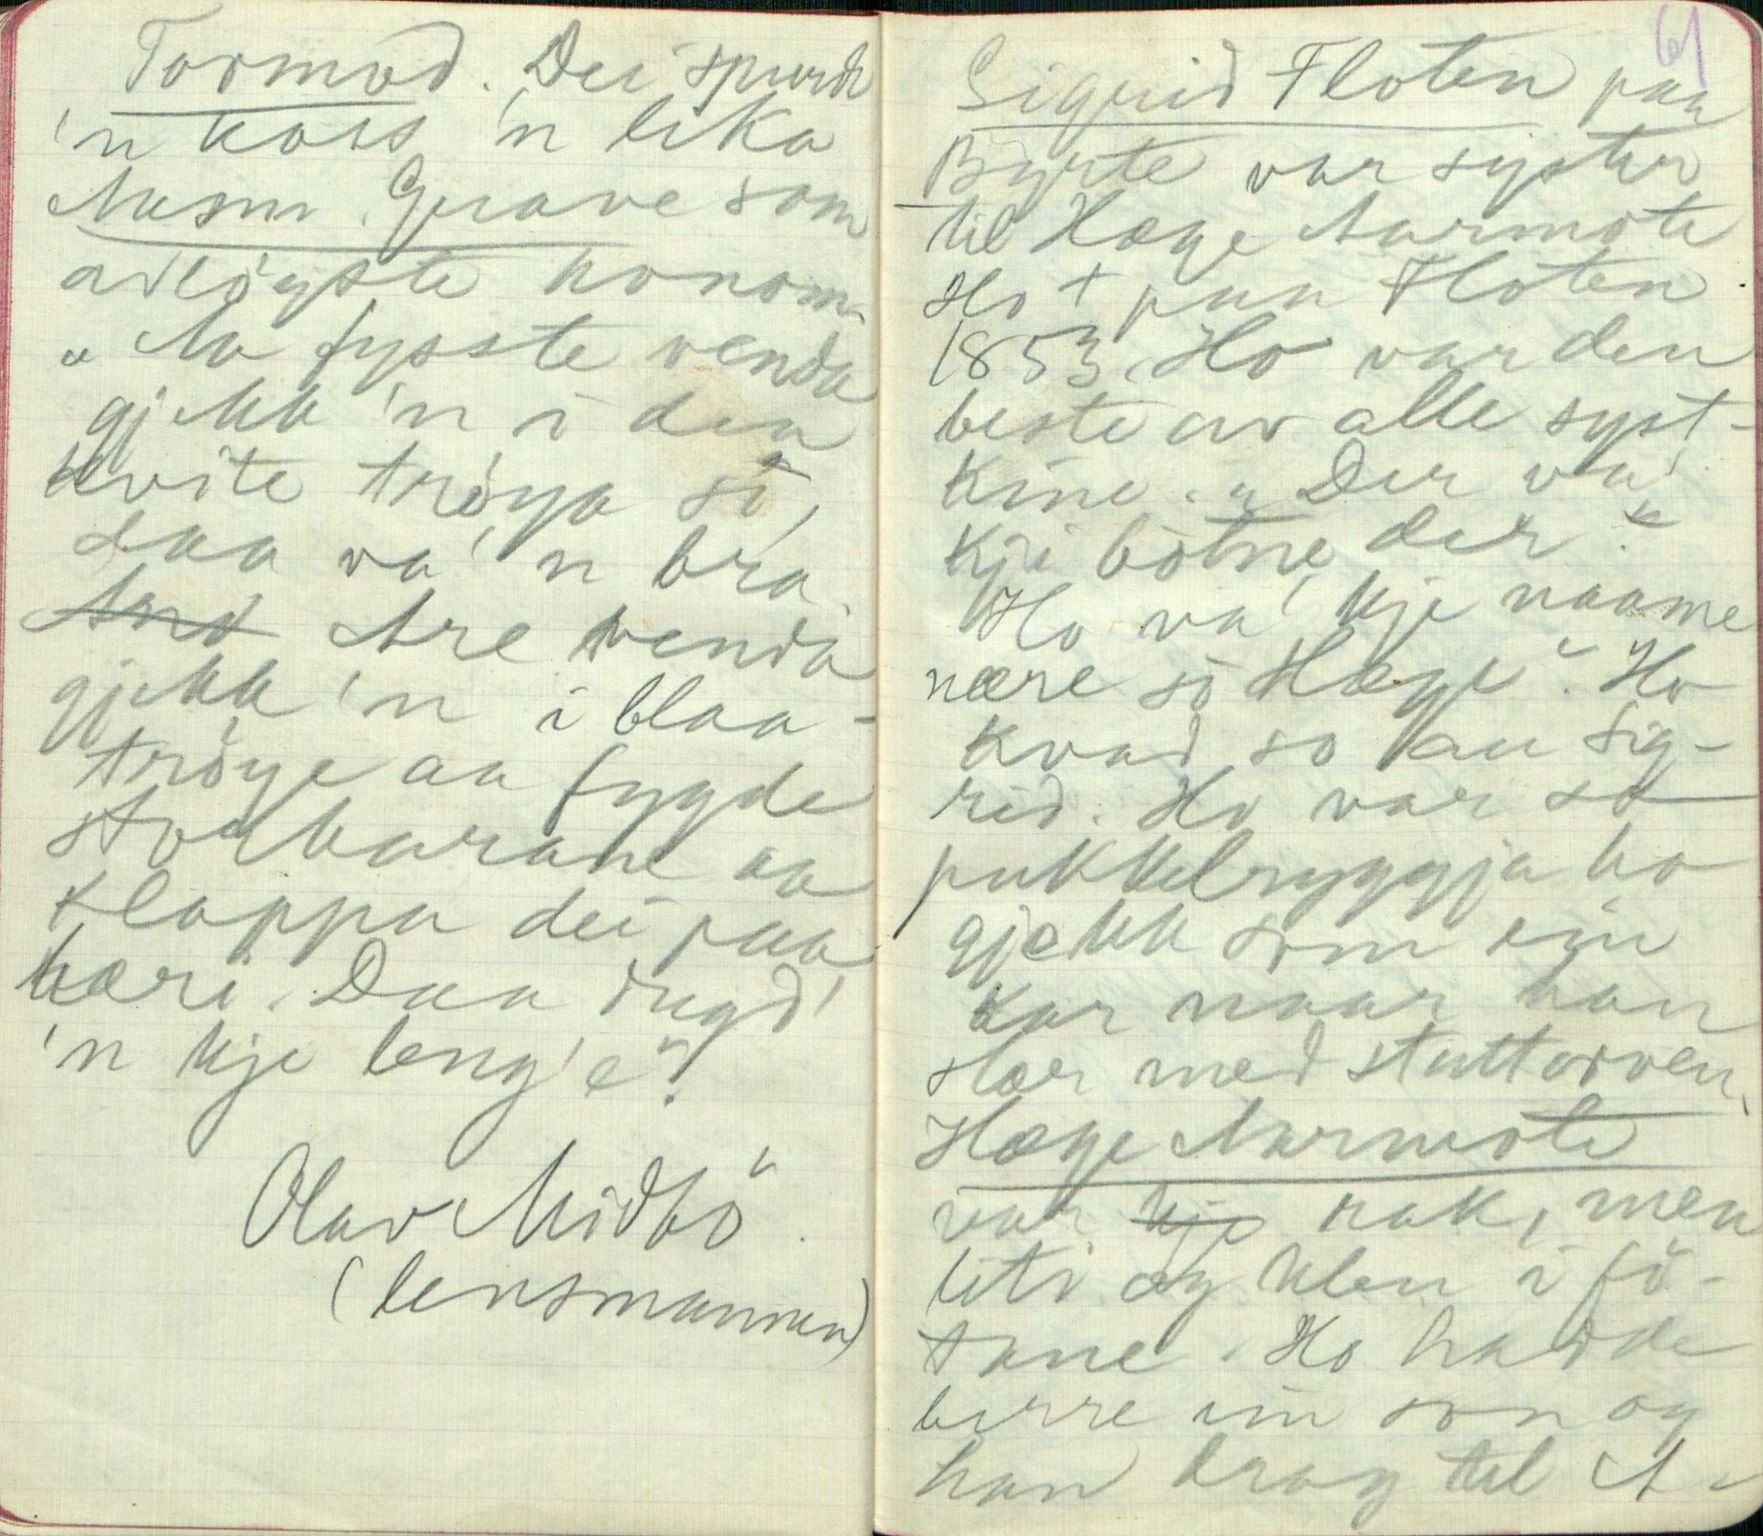 Tormod. Dei spurde
'n koss 'n lika
Aasm. Grave som
avløyste honom.
"Aa fysste venda
gjekk 'n i den
kvite trøya si,
daa va' 'n bra.
And Are venda
gjekk 'n i blaa-
trøye aa fygde
storkarane aa
klappa dei paa
hæri. Daa dugd'
'n kje leng'e".
Olav Midbö
(lensmannen)
61
Sigrid Floten paa
Byrte var syster
til Hæge Aarmote
Ho + paa Floten
1853. Ho var den
beste av alle syst-
kine. "Der va'
kje botne der".
"Ho va' kje naame
nære so Hæge". Ho
kvad so au Sig-
rid. Ho var so
pukkelryggja ho
gjekk som ein
kar naar han
slær med stuttorven.
Hæge Aarmote
var kje rak, men
liti og klen i fö-
tane. Ho hadde
berre ein son og
han drog til A-